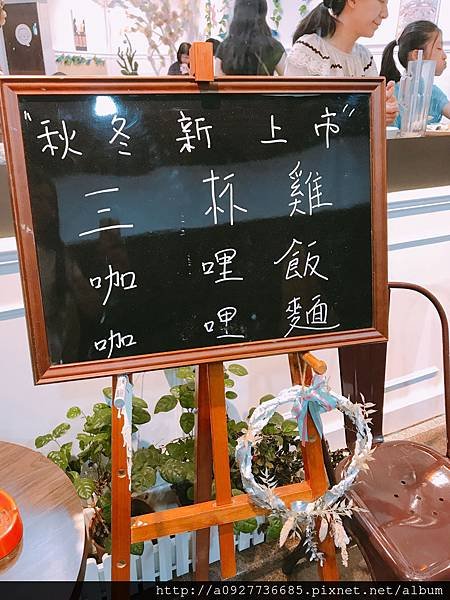 "秋冬新上市"
三杯雞
咖哩飯
咖哩麵
http://a0927736685.pixnet.net/album